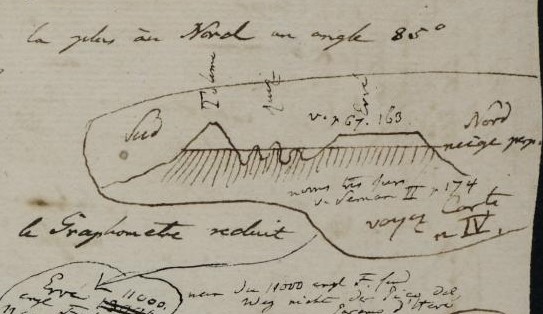 la plus au Nord un angle 85°
Sud
Tolima
Ruiz
Ervé
v. p 67. 163
Nord
neige perp.
noms très surs
v. Seman II p 174
voyez Carte
n IV.
le Graphometre reduit
Ervé 11000.
angl F.
nur die 11000 angl F. sind
Weg nicht der Pico del